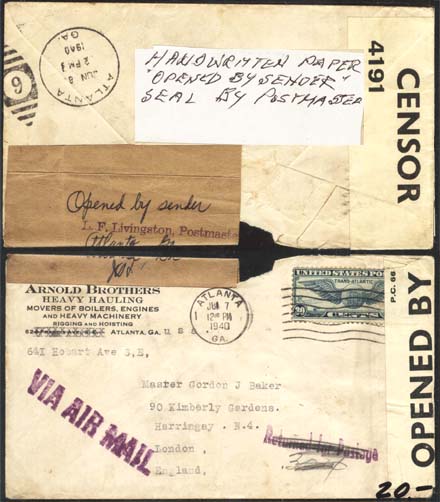 ATLANTA
GA.
JUN 8
2 PM
1940
6
HANDWRITTEN PAPER
"OPENED BY SENDER"
SEAL BY POSTMASTER
4191
CENSOR
Opened by sender
L. F. Livingston, Postmaster
Atlanta
ARNOLD BROTHERS
HEAVY HAULING
MOVERS OF BOILERS, ENGINES
AND HEAVY MACHINERY
RIGGING AND HOISTING
ATLANTA, GA.
U S A
641 Hobart Ave S,E,
ATLANTA
GA.
JUN 7
12 PM
1940
UNITED STATES POS
TRANS-ATLANTIC
P.C. 66
OPENED BY
Master Gordon J Baker
90 Kimberly Gardens.
Harringay . N.4.
London ,
England,
VIA AIR MAIL
Returned for Postage
20.-